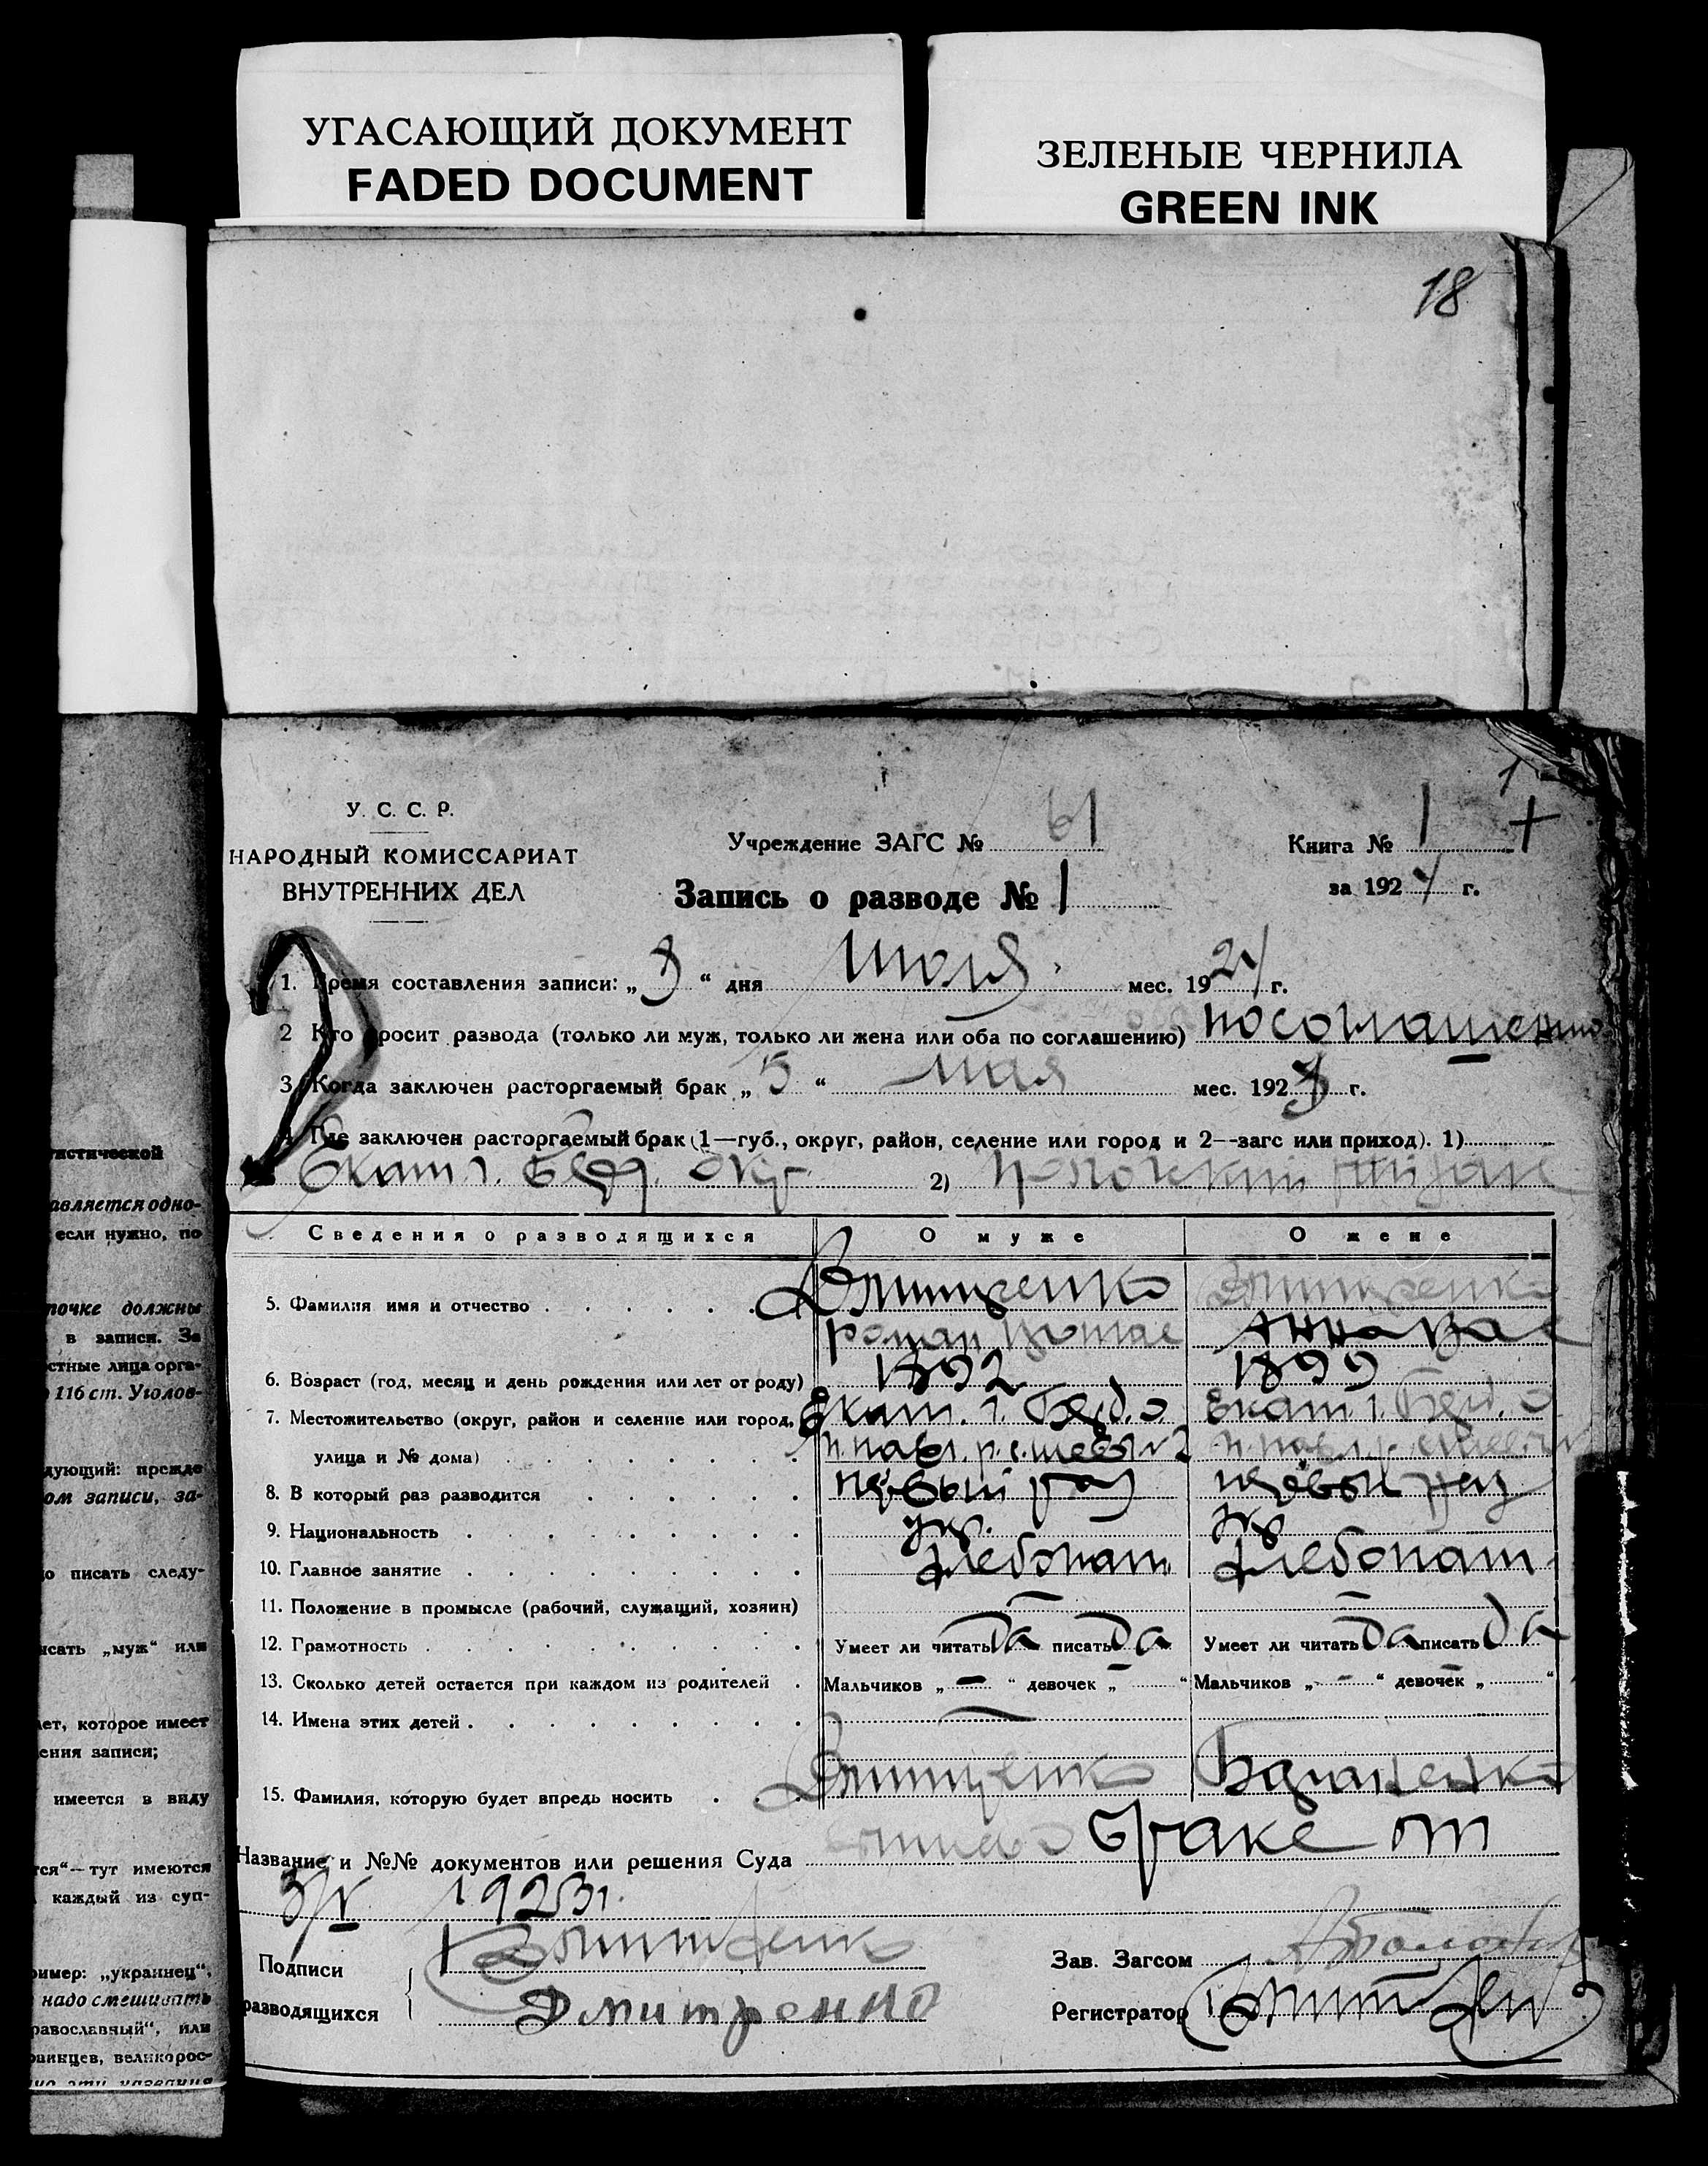 УГАСАЮЩИЙ ДОКУМЕНТ
FADED DOCUMENT
ЗЕЛЕНЫЕ ЧЕРНИЛА
GREEN INK
18
истической
авляется одно-
если нужно, по
почке должны
в записи. За
стные лица орга-
116 ст. Уголов-
дующий: прежде
ом записи, за-
о писать следу-
исать „муж“ или
лет, которое имеет
ения записи;
имеется в виду
тся“—тут имеются
каждый из суп-
ример: „украинец“,
надо смешивать
равославный“, или
раинцев, великорос-
У. С. С. Р.
НАРОДНЫЙ КОМИССАРИАТ
ВНУТРЕННИХ ДЕЛ
Учреждение ЗАГС № 61
Книга № 1
за 1924 г.
Запись о разводе № 1
1. Время составления записи: „3“ дня июля мес. 1924 г.
2 Кто просит развода (только ли муж, только ли жена или оба по соглашению) по соглашению
3. Когда заключен расторгаемый брак „5“ мая мес. 1923 г.
4. Где заключен расторгаемый брак (1—губ., округ, район, селение или город и 2—загс или приход). 1)
Екат. г. Берд. окр. 2)
Сведения о разводящихся О муже О жене
5. Фамилия имя и отчество Дмитренко Дмитренко
роман Анна
6. Возраст (год, месяц и день рождения или лет от роду) 1892 1899
7. Местожительство (округ, район и селение или город, Екат. г. Берд. о Екат. г. Берд. о
улица и № дома)
8. В который раз разводится первый раз первый раз
9. Национальность укр. укр
10. Главное занятие хлебопаш хлебопаш
11. Положение в промысле (рабочий, служащий, хозяин) — —
12. Грамотность Умеет ли читать да писать да Умеет ли читать да писать да
13. Сколько детей остается при каждом из родителей Мальчиков „ — “ девочек „ — “ Мальчиков „ — “ девочек „ — “
14. Имена этих детей —
15. Фамилия, которую будет впредь носить Дмитренко
Название и №№ документов или решения Суда браке от
3/V 1923 г.
Подписи Дмитренко
разводящихся Дмитренко
Зав. Загсом
Регистратор